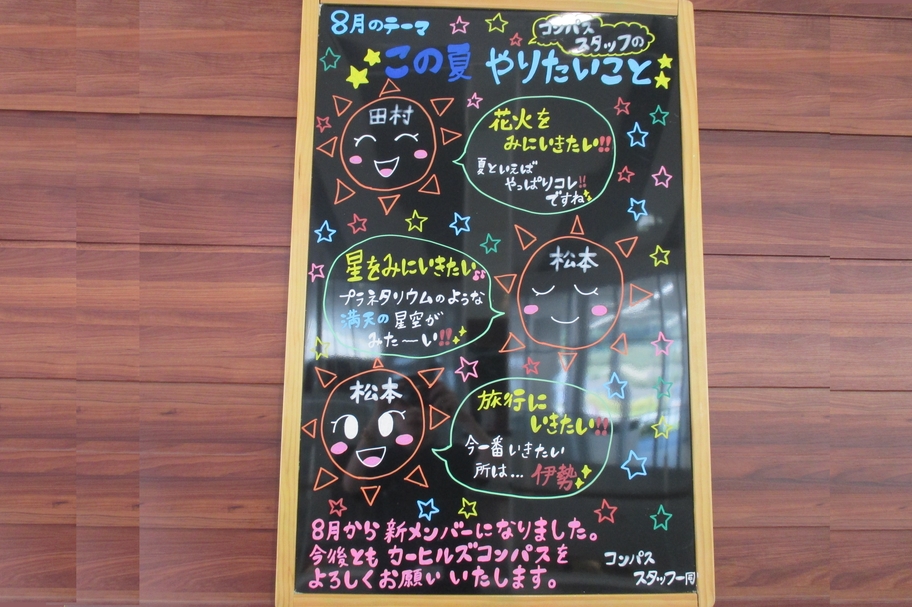 8月のテーマ
コンパス
スタッフの
この夏 やりたいこと
田村
花火を
みにいきたい!!
夏といえば
やっぱりコレ!!
ですね
松本
星をみにいきたい♫
プラネタリウムのような
満天の星空が
みた〜い!!
松本
旅行に
いきたい!!
今一番いきたい
所は...伊勢
8月から新メンバーになりました。
今後とも カーヒルズコンパスを
よろしくお願い いたします。
コンパス
スタッフ一同